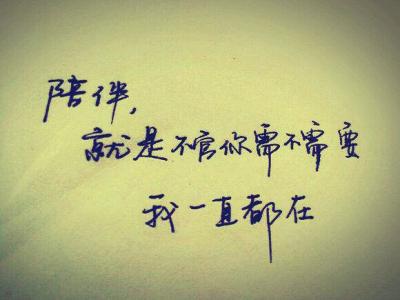 陪伴,
就是不管你需不需要
我一直都在